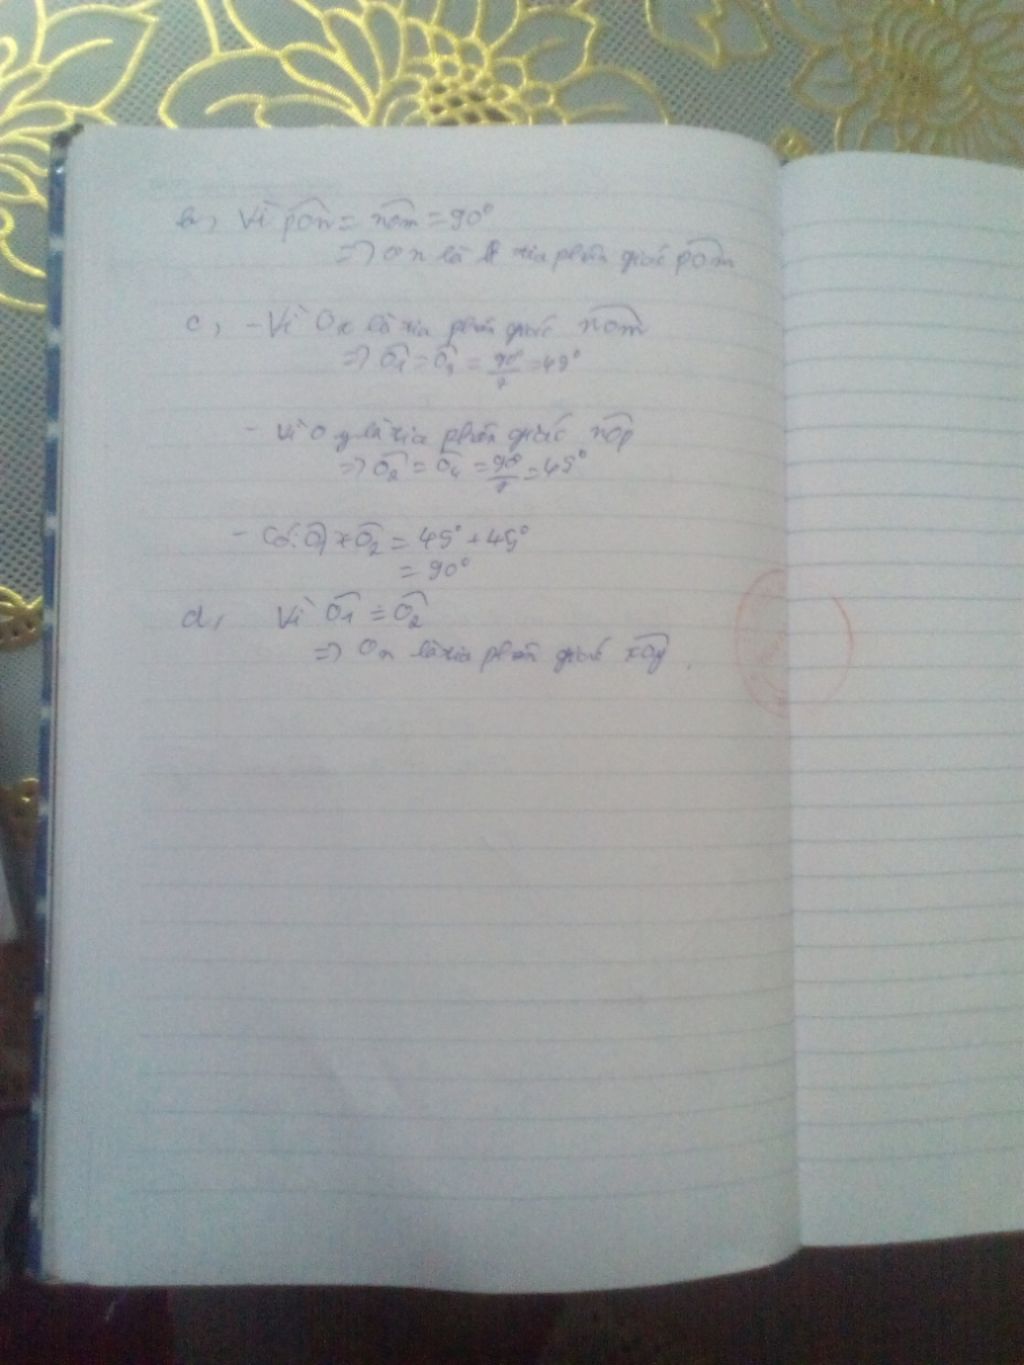 b, Vì pOn = nOm = 90°
=> On là tia phân giác pOm
c, - Vì Ox là tia phân giác nOm
=> O1 = O3 = 90°/2 = 45°
- Vì Oy là tia phân giác nOp
=> O2 = O4 = 90°/2 = 45°
- Có: O1 + O2 = 45° + 45°
= 90°
d, Vì O1 = O2
=> On là tia phân giác xOy.